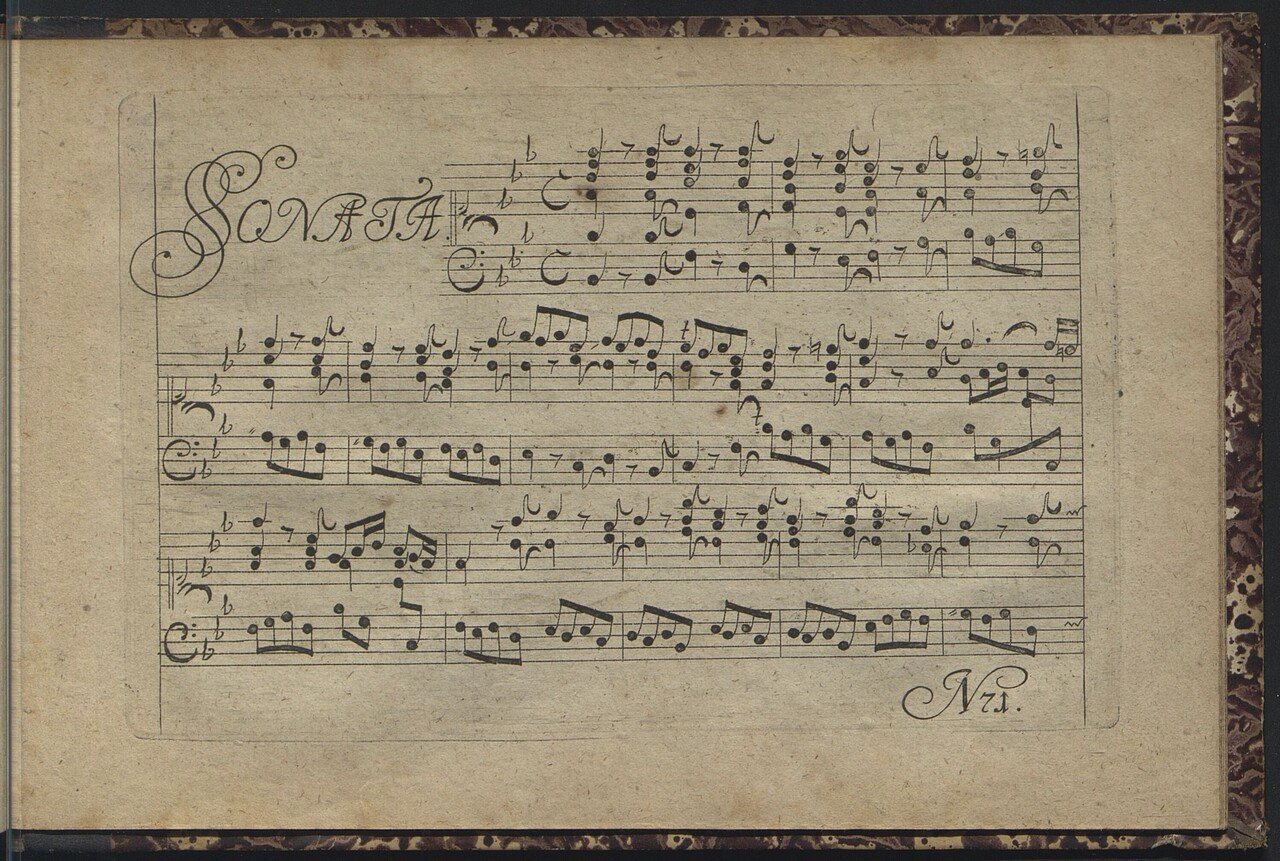 SONATA.
Nr1.